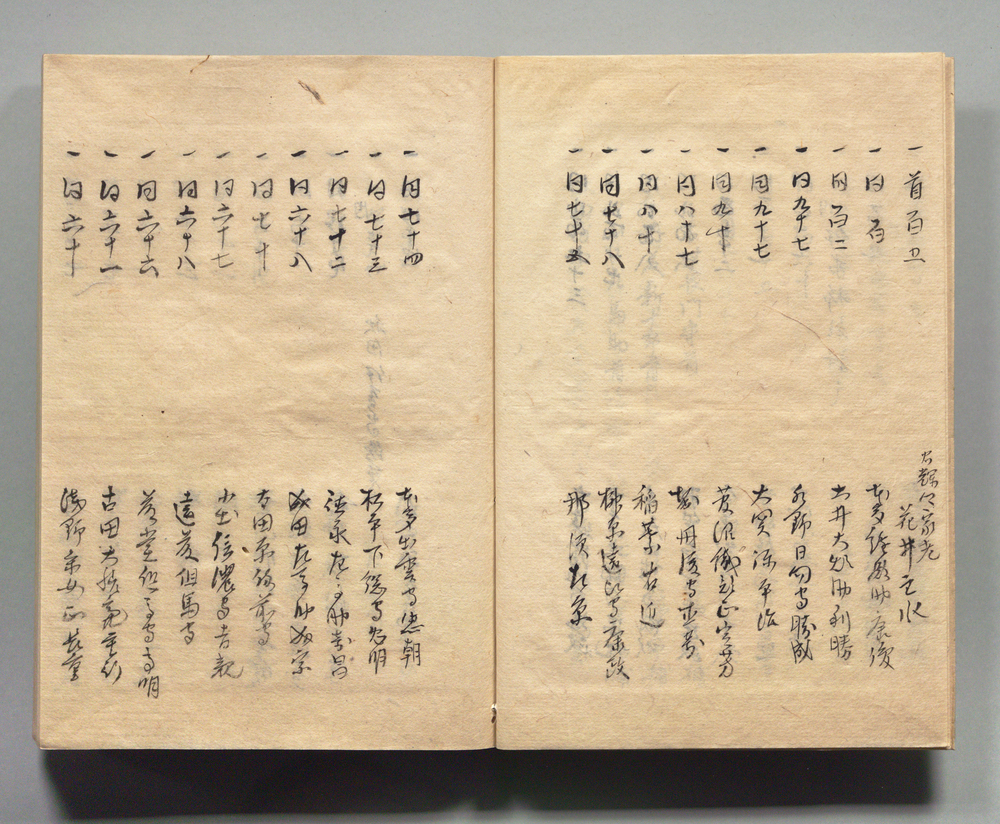 一 首百五 家老 花井主水
一 同百 本多縫殿助康俊
一 同百二 土井大炊助利勝
一 同九十七 水野日向守勝成
一 同九十七 大関弥平治
一 同九十 菅沼織部正定芳
一 同八十七 堀丹後守直寄
一 同八十八 稲葉右近
一 同七十八 榊原遠江守康政
一 同七十五 那須左京
一 同七十四 本多出雲守忠朝
一 同七十三 松平下総守忠明
一 同七十二 徳永左馬助壽昌
一 同六十八 田左馬助
一 同七十 太田原備前守
一 同六十七 小出信濃守吉親
一 同六十八 遠藤但馬守
一 同六十六
一 同六十一 古田大膳亮重治
一 同六十 浅野采女正長重